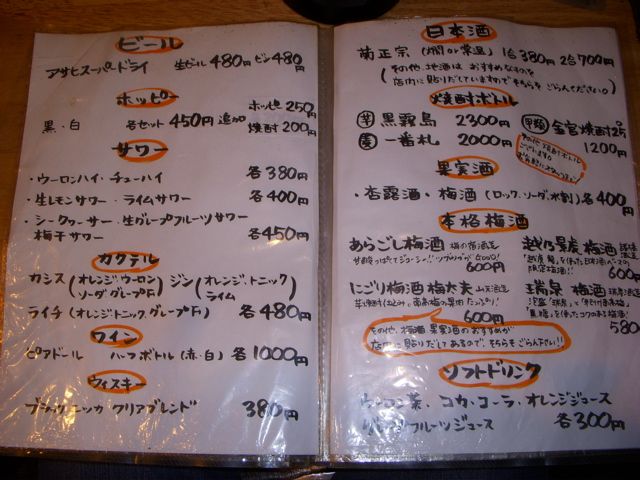 ビール
アサヒスーパードライ 生ビール480円 ビン480円
ホッピー
黒・白 各セット450円 追加 ホッピー250円
焼酎200円
サワー
・ウーロンハイ・チューハイ 各380円
・生レモンサワー・ライムサワー 各400円
・シークヮーサー・生グレープフルーツサワー
梅干サワー 各450円
カクテル
カシス(オレンジ・ウーロン ソーダ・グレープF) ジン(オレンジ・トニック ライム)
ライチ(オレンジ・トニック・グレープF) 各480円
ワイン
ピアドール ハーフボトル(赤・白) 各1000円
ウィスキー
ブラックニッカ クリアブレンド 380円
日本酒
菊正宗(燗or常温) 1合380円 2合700円
(その他、地酒は おすすめなものを
店内に貼りだしていますので そちらを ごらんください。)
焼酎ボトル
芋 黒霧島 2300円 甲類 金宮焼酎25
麦 一番札 2000円 1200円
その他 焼酎ボトル
ございます。
果実酒
・杏露酒・梅酒(ロック、ソーダ、水割)各400円
本格梅酒
あらごし梅酒 梅の宿酒造
600円
越乃景虎 梅酒
「越乃景虎」を使った日本酒ベースの
限定梅酒!!
600円
にごり梅酒 梅太夫 山元酒造
600円
瑞泉 梅酒 瑞泉酒造
泡盛「瑞泉」と
「黒糖」を使ったコクのある梅酒
580
その他、梅酒・果実酒のおすすめが
店内に貼りだしてあるので、そちらもごらん下さい!!
ソフトドリンク
ウーロン茶、コカ・コーラ・オレンジジュース
グレープフルーツジュース 各300円